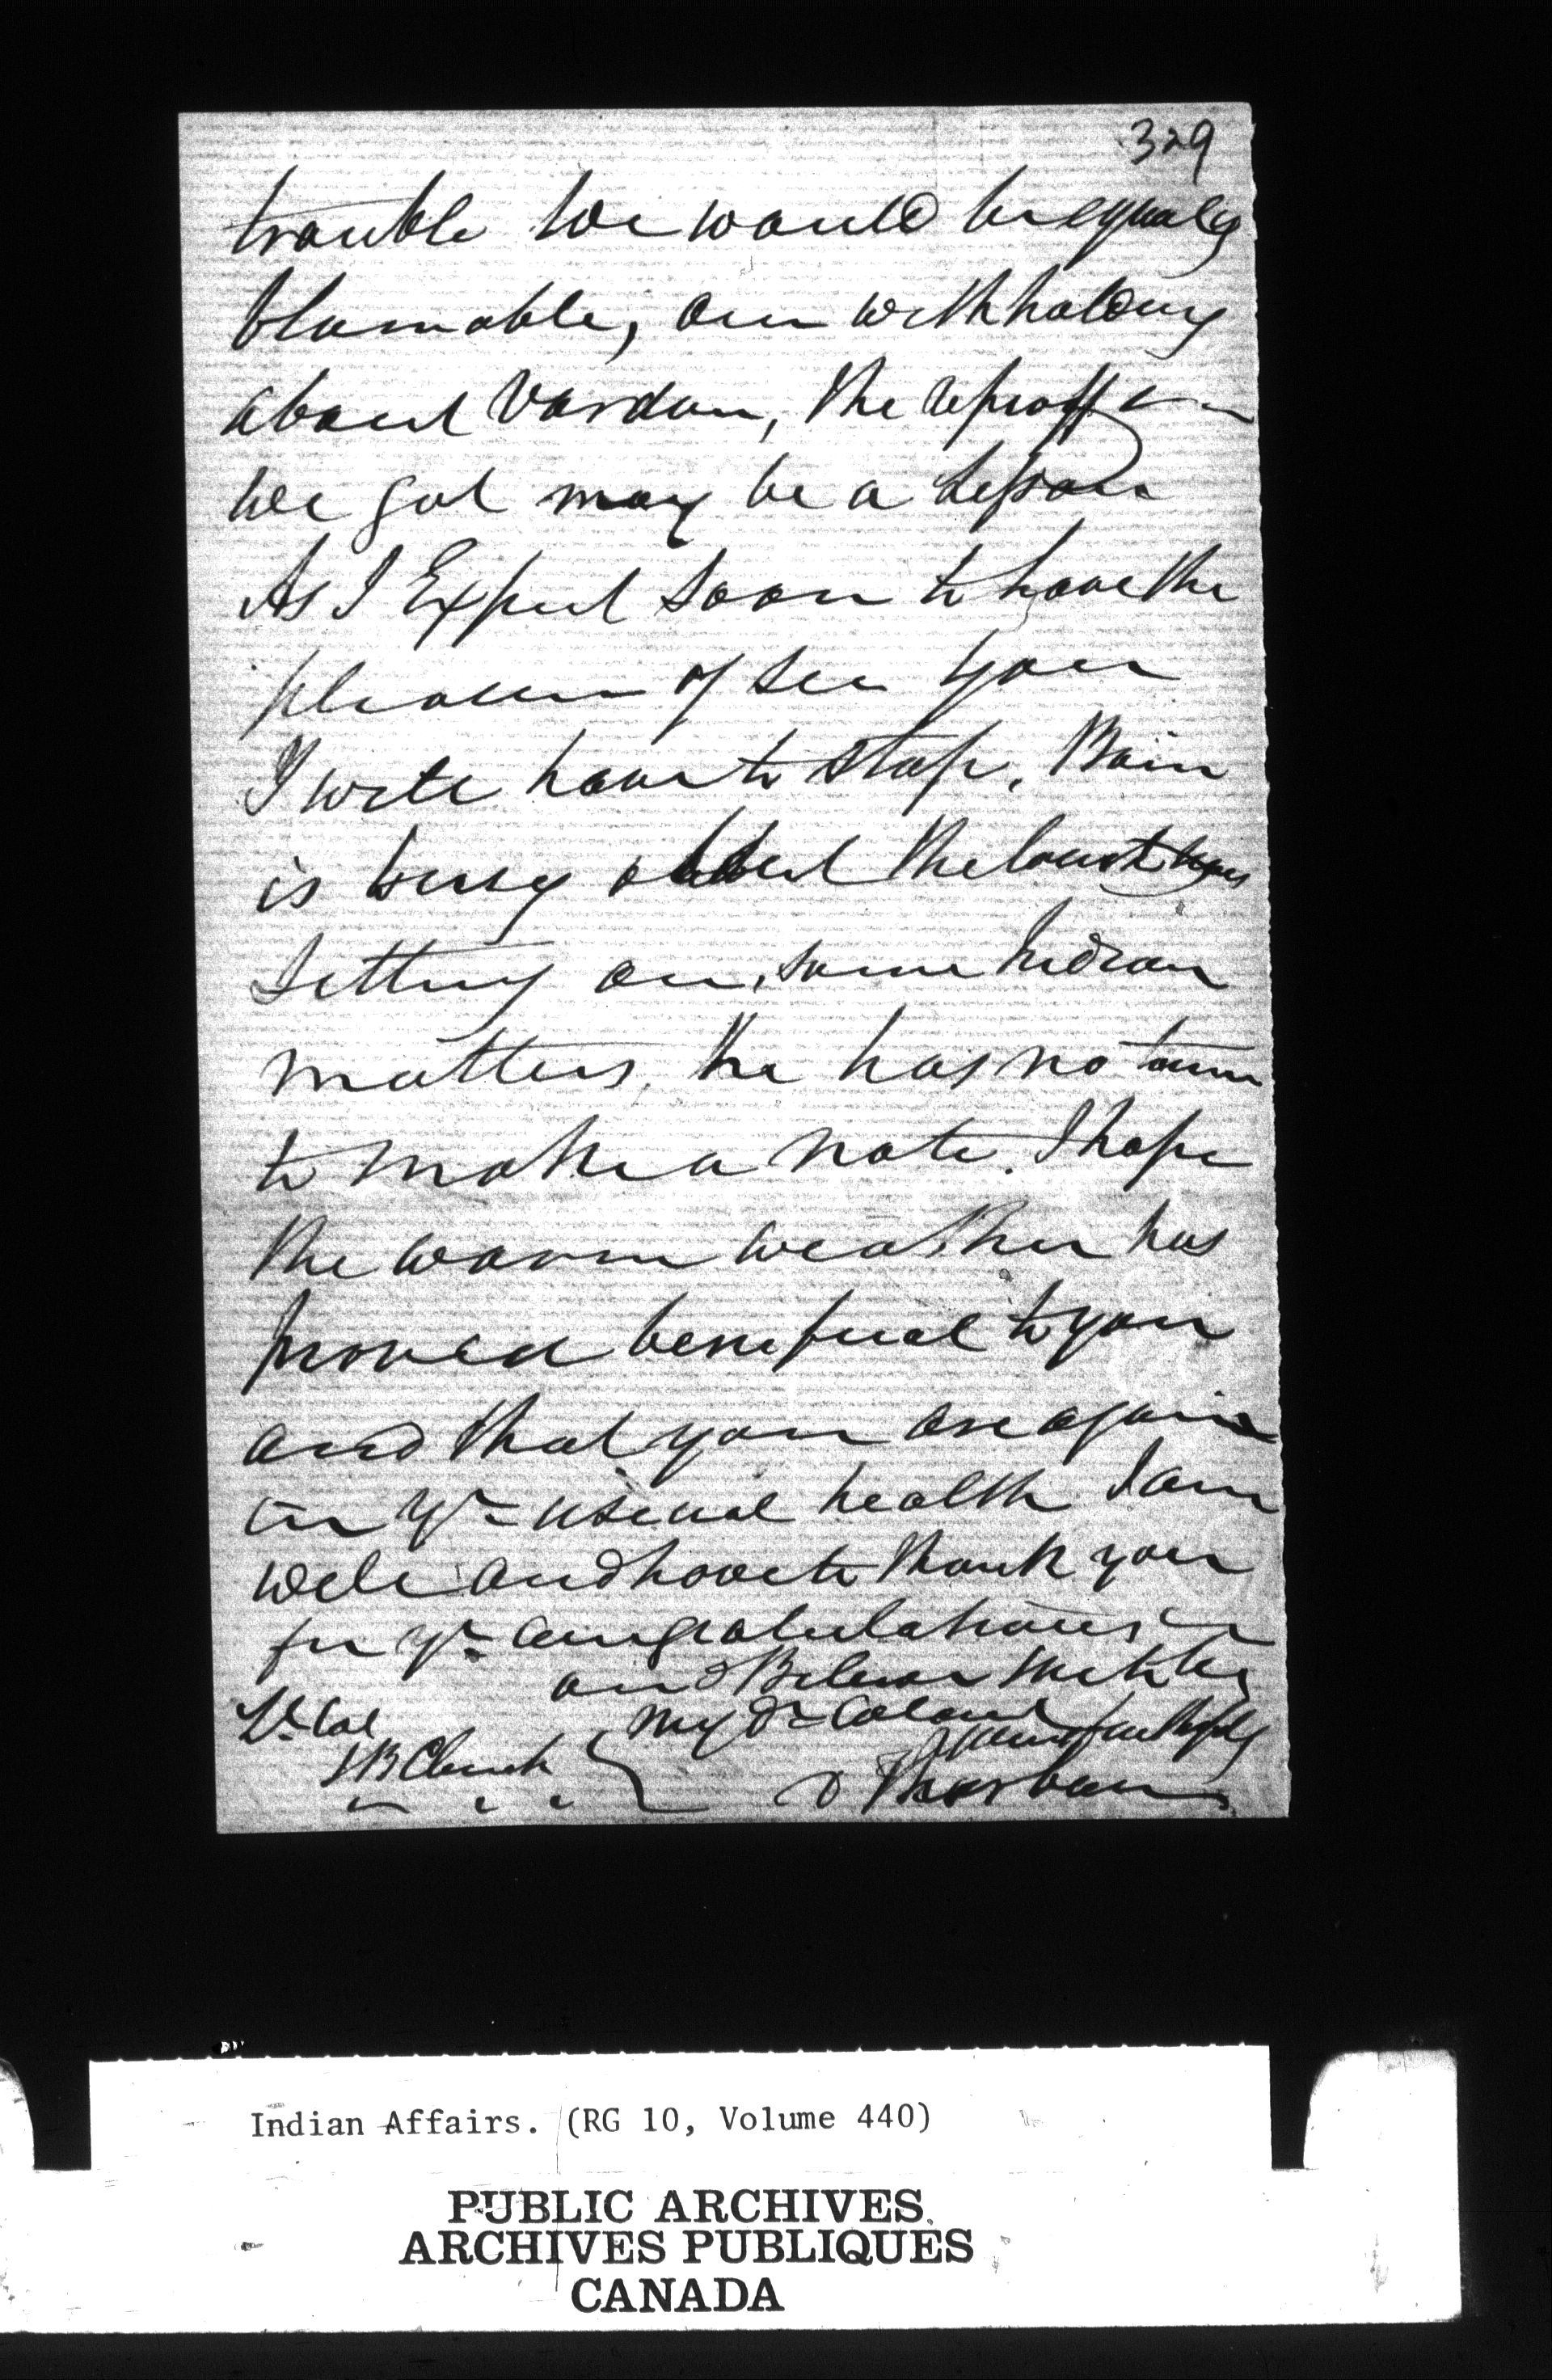 329
trouble We would be equaly
blamable, our withholding
about Vardon, the reproff
we got may be a lesson
As I Expect soon to have the
pleasure of see you
I will have to stop. Bain
is busy the
Setting on some Indian
matters, he has no time
to make a note. I hope
the warm weather has
proved benefical to you
and that you are again
in yr usual health I am
well and have to thank you
for yr congratulations
and Believe me to be
Lt Col
My Dr Colonel
yours faithfully
D Thorburn
Indian Affairs. (RG 10, Volume 440)
PUBLIC ARCHIVES
ARCHIVES PUBLIQUES
CANADA